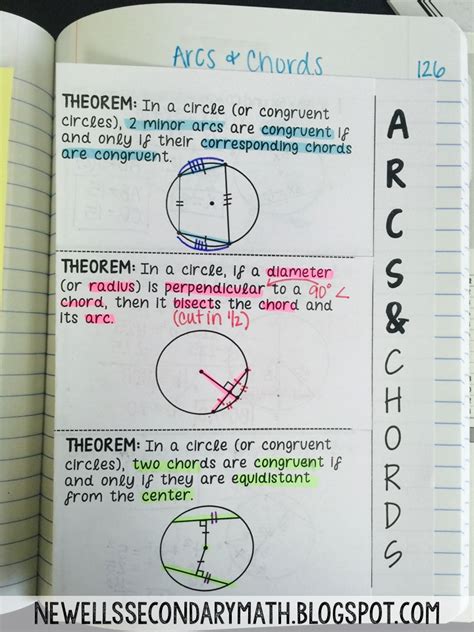 Arcs & Chords
126
THEOREM: In a circle (or congruent
circles), 2 minor arcs are congruent if
and only if their corresponding chords
are congruent.
THEOREM: In a circle, if a diameter
(or radius) is perpendicular to a 90° <
chord, then it bisects the chord and
its arc. (cut in 1/2)
THEOREM: In a circle (or congruent
circles), two chords are congruent if
and only if they are equidistant
from the center.
ARCS & CHORDS
NEWELLSSECONDARYMATH.BLOGSPOT.COM